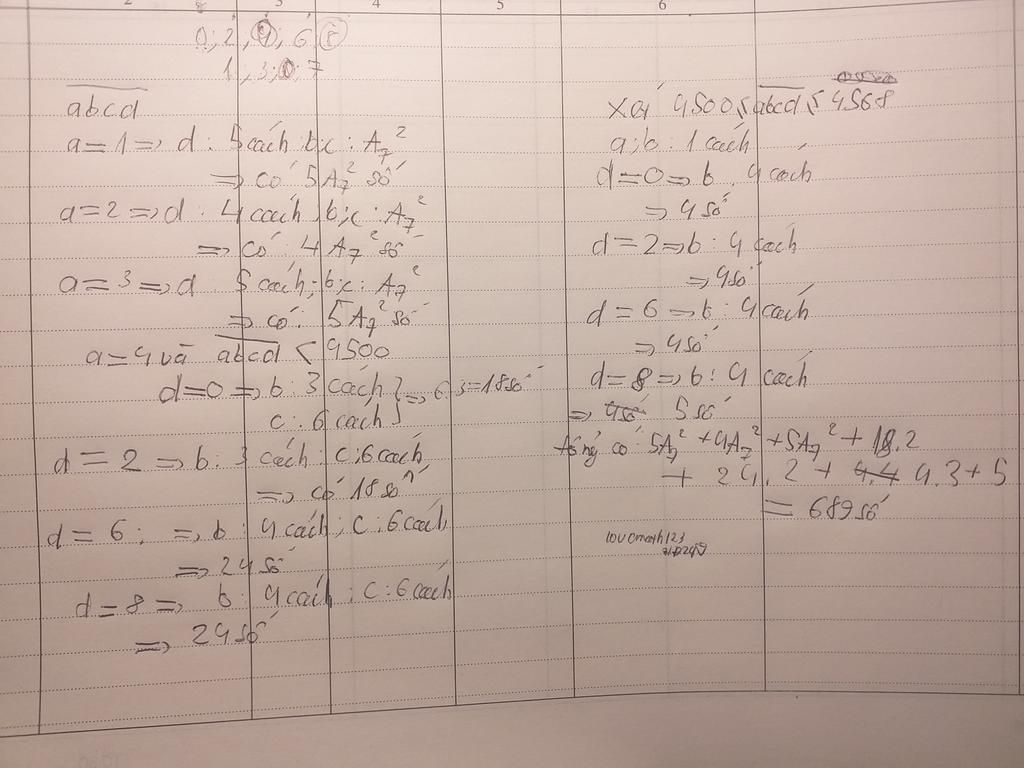 2 3 4 5 6
0; 2; 4; 6; 8
1; 3; 0; 7
abcd
a=1 => d: 5 cách b;c: A₇²
=> có 5A₇² số
a=2 => d: 4 cách b;c: A₇²
=> có: 4A₇² số
a=3 => d 5 cách; b;c: A₇²
=> có: 5A₇² số
a=4 và abcd < 4500
d=0 => b: 3 cách } => 6.3=18 số
c: 6 cách }
d=2 => b: 3 cách c: 6 cách
=> có 18 số
d=6; => b: 4 cách; c: 6 cách
=> 24 số
d=8 => b: 4 cách; c: 6 cách
=> 24 số
Xét 4500 ≤ abcd ≤ 4568
a; b: 1 cách
d=0 => b: 4 cách
=> 4 số
d=2 => b: 4 cách
=> 4 số
d=6 => b: 4 cách
=> 4 số
d=8 => b: 4 cách
=> 5 số
có: 5A₇² + 4A₇² + 5A₇² + 18.2
+ 24.2 + 4.3 + 5
= 689 số
lovemath123